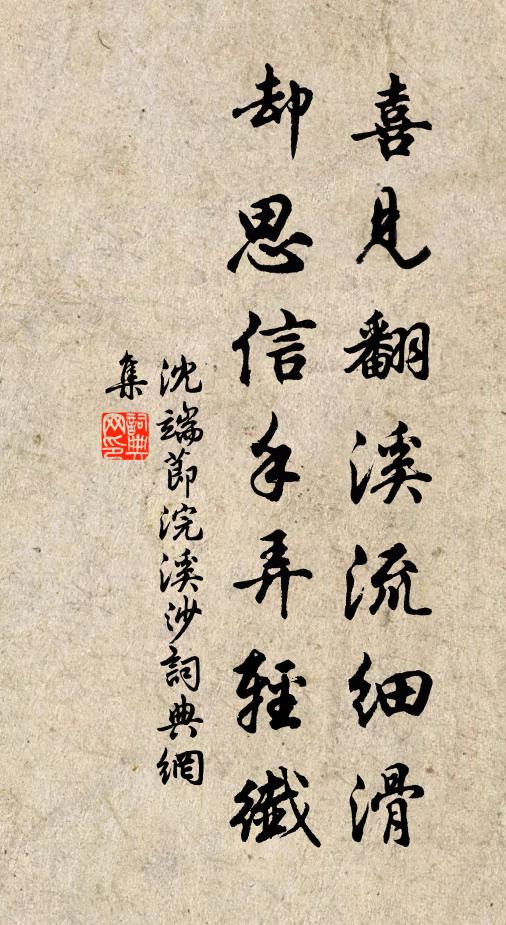 喜見翻溪流細滑
却思信手弄輕纖
沈端節浣溪沙詞典網
集
詞典網印